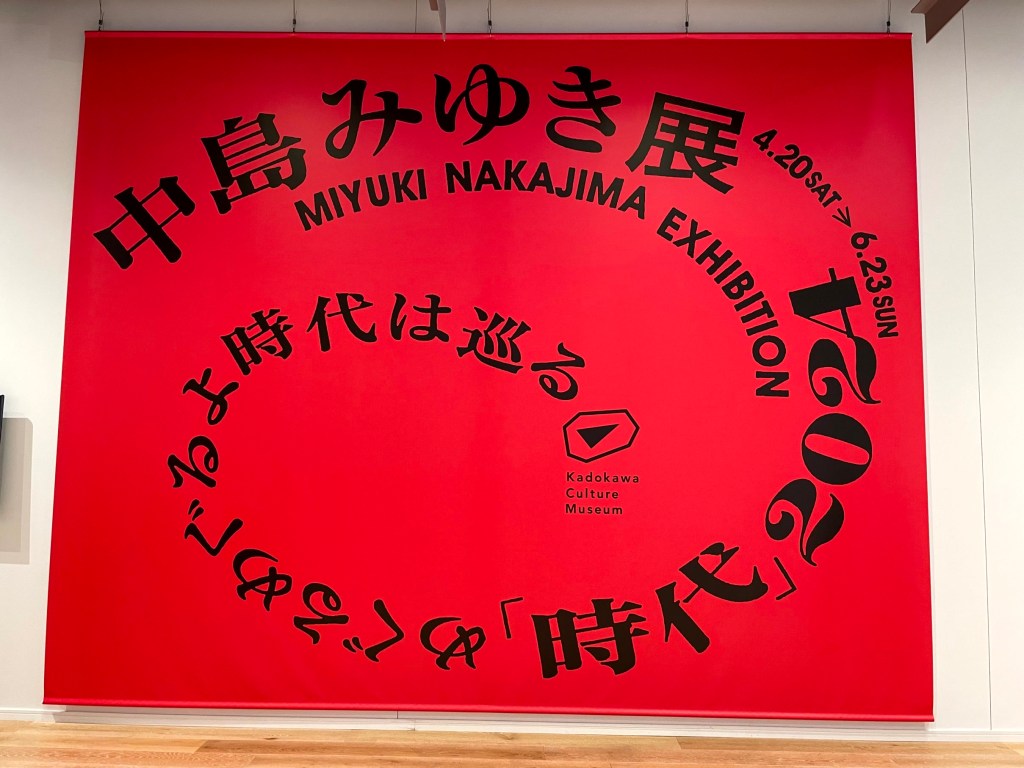 中島みゆき展
MIYUKI NAKAJIMA EXHIBITION
4.20SAT>6.23SUN
「時代」2024
めぐるめぐるよ時代は巡る
Kadokawa
Culture
Museum